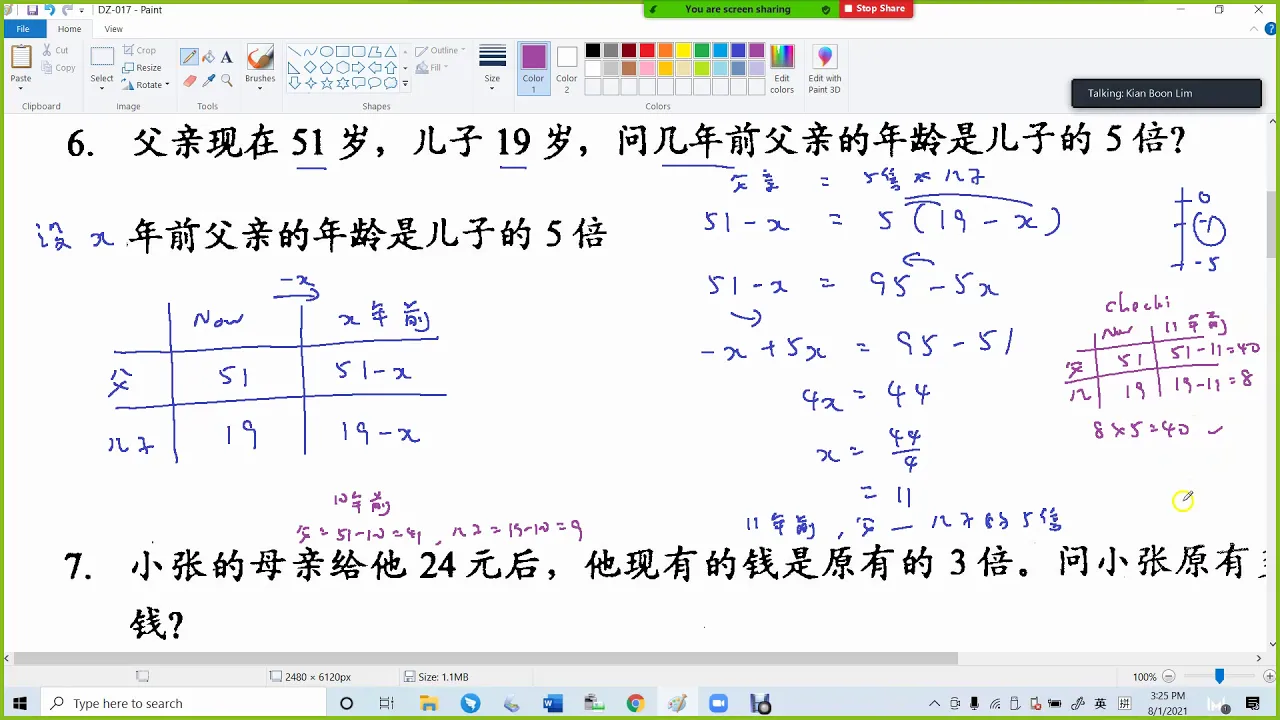 DZ-017 - Paint
You are screen sharing
Stop Share
File
Home
View
Paste
Cut
Copy
Clipboard
Select
Crop
Resize
Rotate
Image
Tools
Brushes
Outline
Fill
Shapes
Size
Color 1
Color 2
Edit colors
Colors
Edit with Paint 3D
Talking: Kian Boon Lim
6. 父亲现在 51 岁，儿子 19 岁，问几年前父亲的年龄是儿子的 5 倍？
父亲 = 5倍 × 儿子
51 - x = 5 (19 - x)
0
-1
-5
设 x 年前父亲的年龄是儿子的 5 倍
51 - x = 95 - 5x
-x + 5x = 95 - 51
4x = 44
x = 44/4
= 11
11 年前，父 — 儿子的 5倍
-x
Now x 年前
父 51 51-x
儿子 19 19-x
Check:
Now 11年前
父 51 51-11=40
儿 19 19-11=8
8×5=40 ✓
10年前
父=51-10=41，儿子=19-10=9
7. 小张的母亲给他 24 元后，他现有的钱是原有的 3 倍。问小张原有
钱？
2480 × 6120px
Size: 1.1MB
100%
Type here to search
英
拼
3:25 PM
8/1/2021